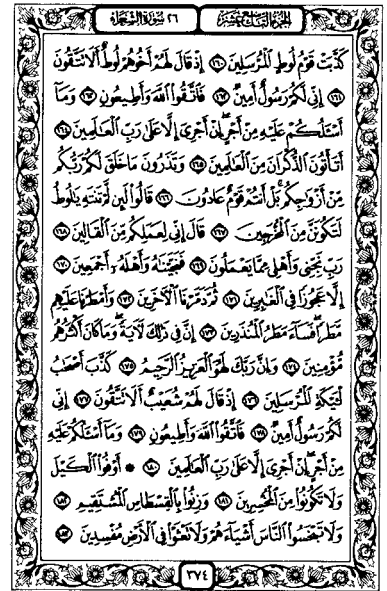 الجزء التاسع عشر ٢٦ سورة الشعراء
كَذَّبَتْ قَوْمُ لُوطٍ الْمُرْسَلِينَ ١٦٠ إِذْ قَالَ لَهُمْ أَخُوهُمْ لُوطٌ أَلَا تَتَّقُونَ
١٦١ إِنِّي لَكُمْ رَسُولٌ أَمِينٌ ١٦٢ فَاتَّقُوا اللَّهَ وَأَطِيعُونِ ١٦٣ وَمَا
أَسْـَٔلُكُمْ عَلَيْهِ مِنْ أَجْرٍ إِنْ أَجْرِيَ إِلَّا عَلَىٰ رَبِّ الْعَالَمِينَ ١٦٤
أَتَأْتُونَ الذُّكْرَانَ مِنَ الْعَالَمِينَ ١٦٥ وَتَذَرُونَ مَا خَلَقَ لَكُمْ رَبُّكُمْ
مِنْ أَزْوَاجِكُمْ بَلْ أَنْتُمْ قَوْمٌ عَادُونَ ١٦٦ قَالُوا لَئِنْ لَمْ تَنْتَهِ يَا لُوطُ
لَتَكُونَنَّ مِنَ الْمُخْرَجِينَ ١٦٧ قَالَ إِنِّي لِعَمَلِكُمْ مِنَ الْقَالِينَ ١٦٨
رَبِّ نَجِّنِي وَأَهْلِي مِمَّا يَعْمَلُونَ ١٦٩ فَنَجَّيْنَاهُ وَأَهْلَهُ أَجْمَعِينَ ١٧٠
إِلَّا عَجُوزًا فِي الْغَابِرِينَ ١٧١ ثُمَّ دَمَّرْنَا الْآخَرِينَ ١٧٢ وَأَمْطَرْنَا عَلَيْهِمْ
مَطَرًا فَسَاءَ مَطَرُ الْمُنْذَرِينَ ١٧٣ إِنَّ فِي ذَٰلِكَ لَآيَةً وَمَا كَانَ أَكْثَرُهُمْ
مُؤْمِنِينَ ١٧٤ وَإِنَّ رَبَّكَ لَهُوَ الْعَزِيزُ الرَّحِيمُ ١٧٥ كَذَّبَ أَصْحَابُ
لْـَٔيْكَةِ الْمُرْسَلِينَ ١٧٦ إِذْ قَالَ لَهُمْ شُعَيْبٌ أَلَا تَتَّقُونَ ١٧٧ إِنِّي
لَكُمْ رَسُولٌ أَمِينٌ ١٧٨ فَاتَّقُوا اللَّهَ وَأَطِيعُونِ ١٧٩ وَمَا أَسْـَٔلُكُمْ عَلَيْهِ
مِنْ أَجْرٍ إِنْ أَجْرِيَ إِلَّا عَلَىٰ رَبِّ الْعَالَمِينَ ١٨٠ * أَوْفُوا الْكَيْلَ
وَلَا تَكُونُوا مِنَ الْمُخْسِرِينَ ١٨١ وَزِنُوا بِالْقِسْطَاسِ الْمُسْتَقِيمِ ١٨٢
وَلَا تَبْخَسُوا النَّاسَ أَشْيَاءَهُمْ وَلَا تَعْثَوْا فِي الْأَرْضِ مُفْسِدِينَ ١٨٣
٣٧٤